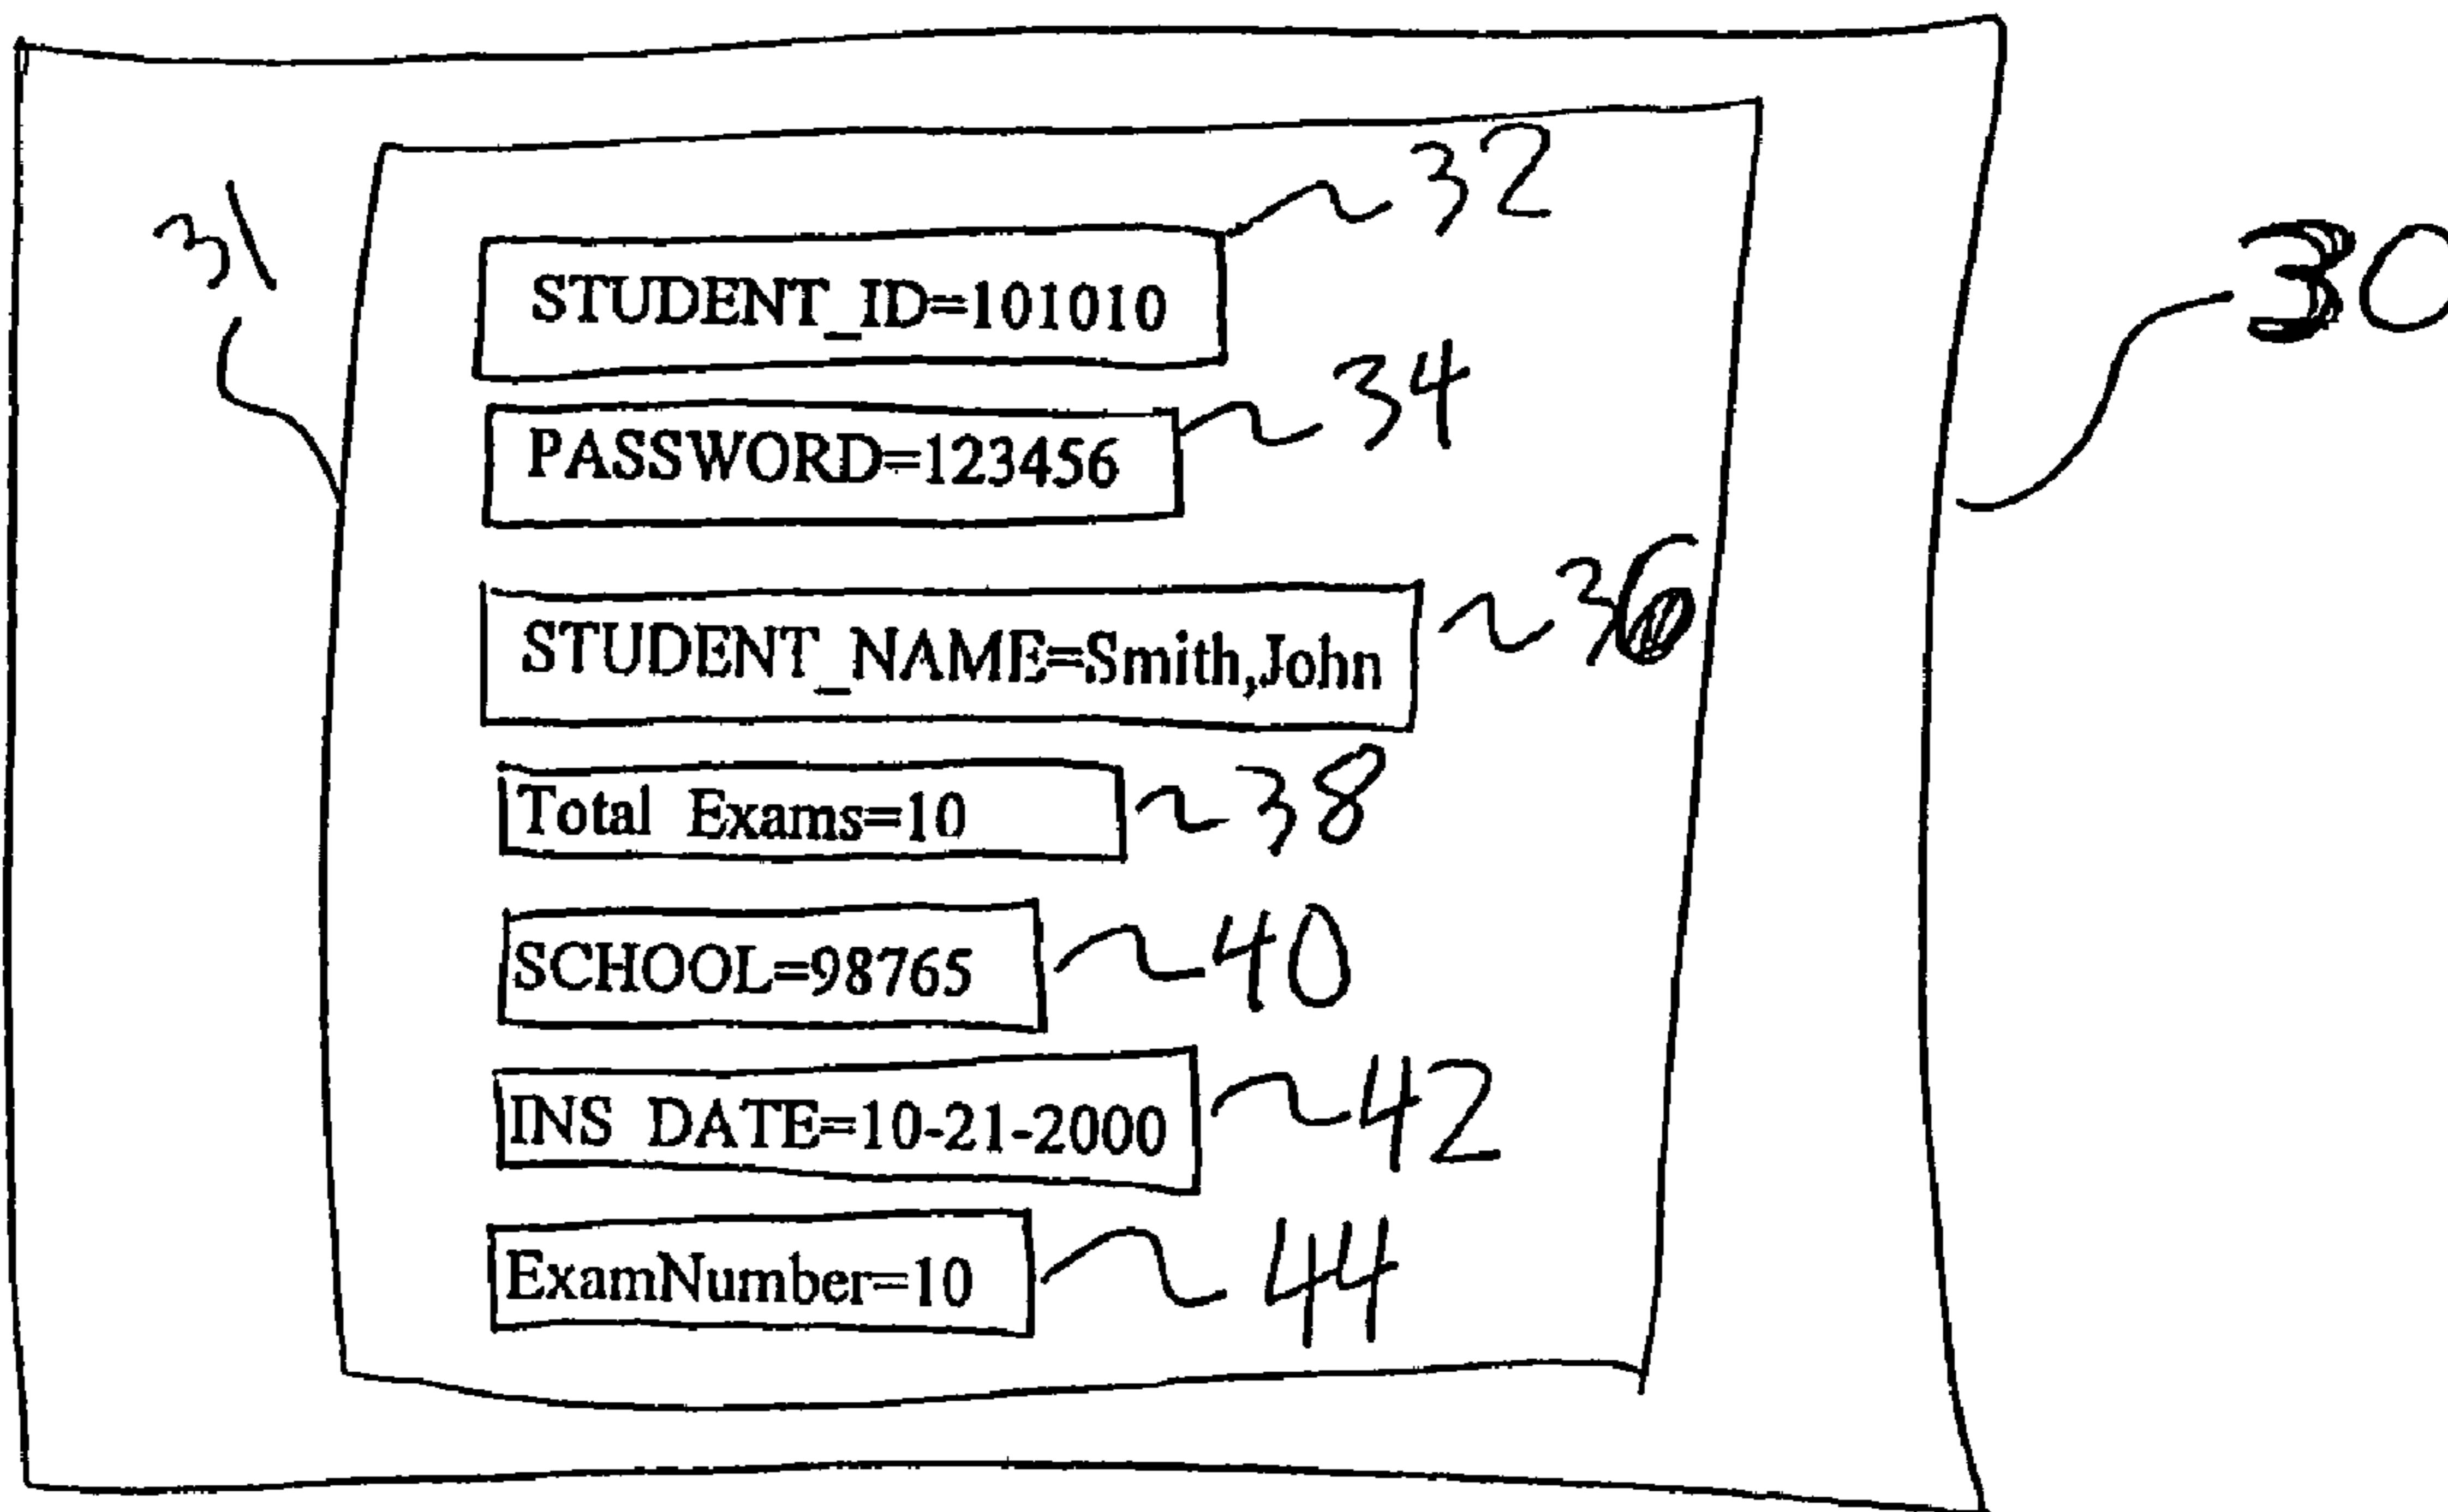 32
31
STUDENT_ID=101010
30
34
PASSWORD=123456
36
STUDENT_NAME=Smith,John
Total Exams=10
38
SCHOOL=98765
40
INS DATE=10-21-2000
42
ExamNumber=10
44